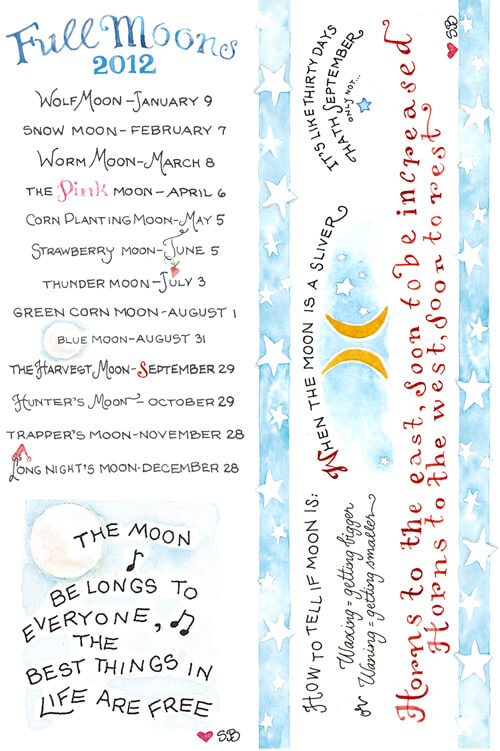 Full Moons
2012
Wolf Moon – January 9
Snow Moon – February 7
Worm Moon – March 8
The Pink Moon – April 6
Corn Planting Moon – May 5
Strawberry Moon – June 5
Thunder Moon – July 3
Green Corn Moon – August 1
Blue Moon – August 31
The Harvest Moon – September 29
Hunter's Moon – October 29
Trapper's Moon – November 28
Long Night's Moon – December 28
The Moon
Belongs to
Everyone,
The
Best Things in
Life Are Free
SB
How to tell if moon is:
Waxing = getting bigger
or Waning = getting smaller
When the moon is a sliver
It's like thirty days
hath September
only not...
Horns to the east, Soon to be increased
Horns to the west, Soon to rest
SB